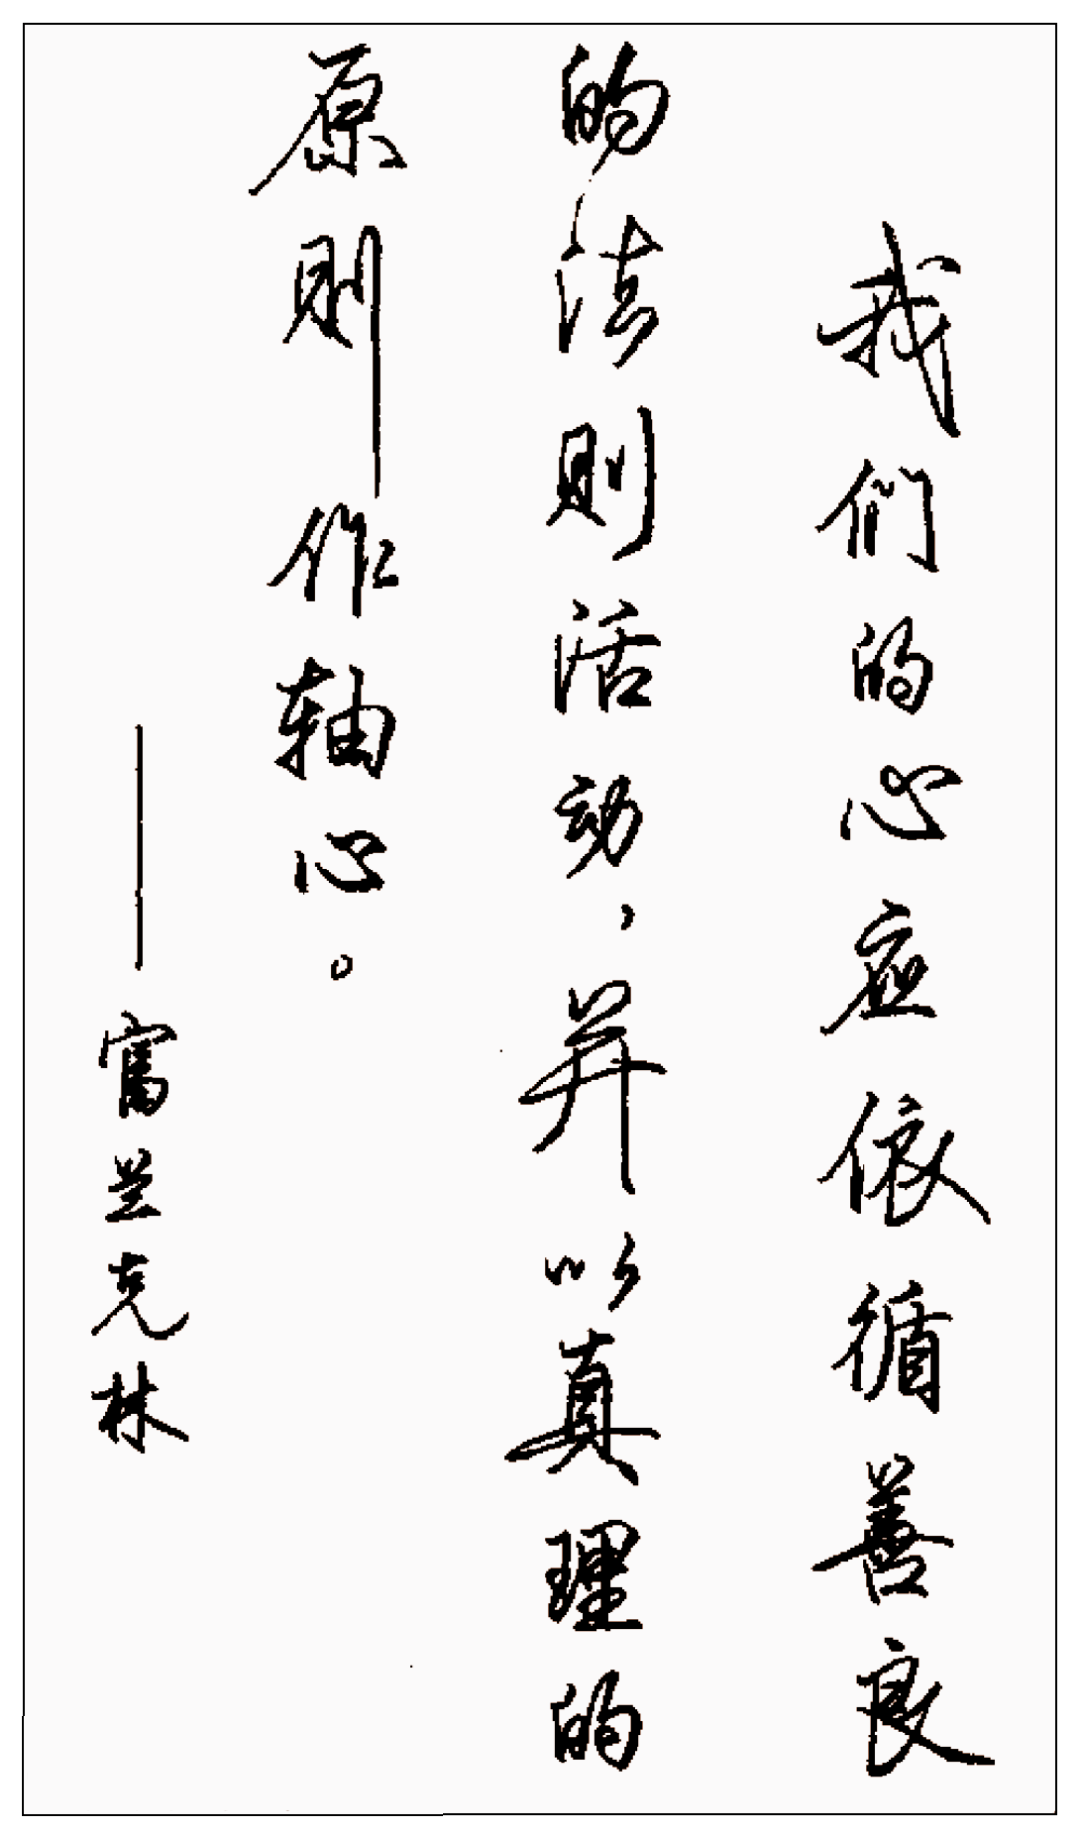 我们的心应依循善良
的法则活动，并以真理的
原则作轴心。
——富兰克林